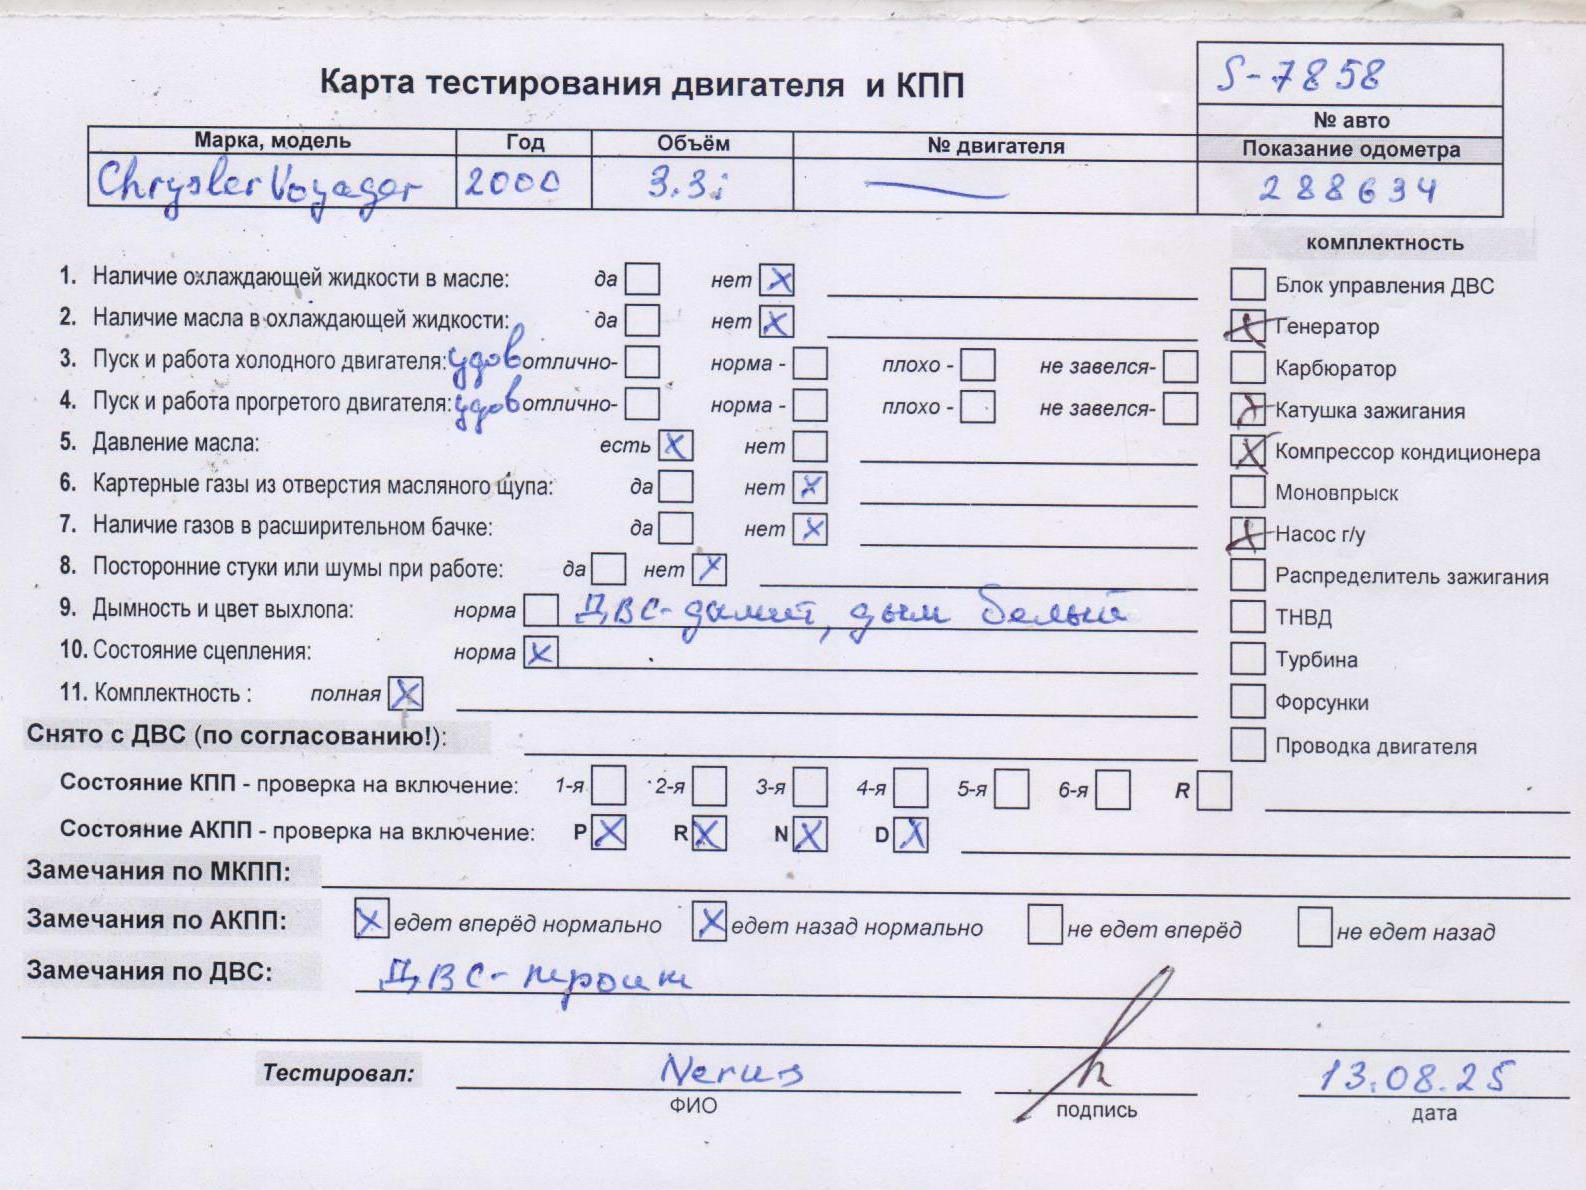 S-7858
Карта тестирования двигателя и КПП
№ авто
Марка, модель Год Объём № двигателя Показание одометра
Chrysler Voyager 2000 3.3i 288634
комплектность
1. Наличие охлаждающей жидкости в масле: да нет X Блок управления ДВС
2. Наличие масла в охлаждающей жидкости: да нет X X Генератор
3. Пуск и работа холодного двигателя: удов отлично- норма - плохо - не завелся- Карбюратор
4. Пуск и работа прогретого двигателя: удов отлично- норма - плохо - не завелся- X Катушка зажигания
5. Давление масла: есть X нет X Компрессор кондиционера
6. Картерные газы из отверстия масляного щупа: да нет X Моновпрыск
7. Наличие газов в расширительном бачке: да нет X X Насос г/у
8. Посторонние стуки или шумы при работе: да нет X Распределитель зажигания
9. Дымность и цвет выхлопа: норма ДВС-дымит, дым белый ТНВД
10. Состояние сцепления: норма X Турбина
11. Комплектность : полная X Форсунки
Снято с ДВС (по согласованию!): Проводка двигателя
Состояние КПП - проверка на включение: 1-я 2-я 3-я 4-я 5-я 6-я R
Состояние АКПП - проверка на включение: P X R X N X D X
Замечания по МКПП:
Замечания по АКПП: X едет вперёд нормально X едет назад нормально не едет вперёд не едет назад
Замечания по ДВС: ДВС-троит
Тестировал: 13.08.25
ФИО подпись дата